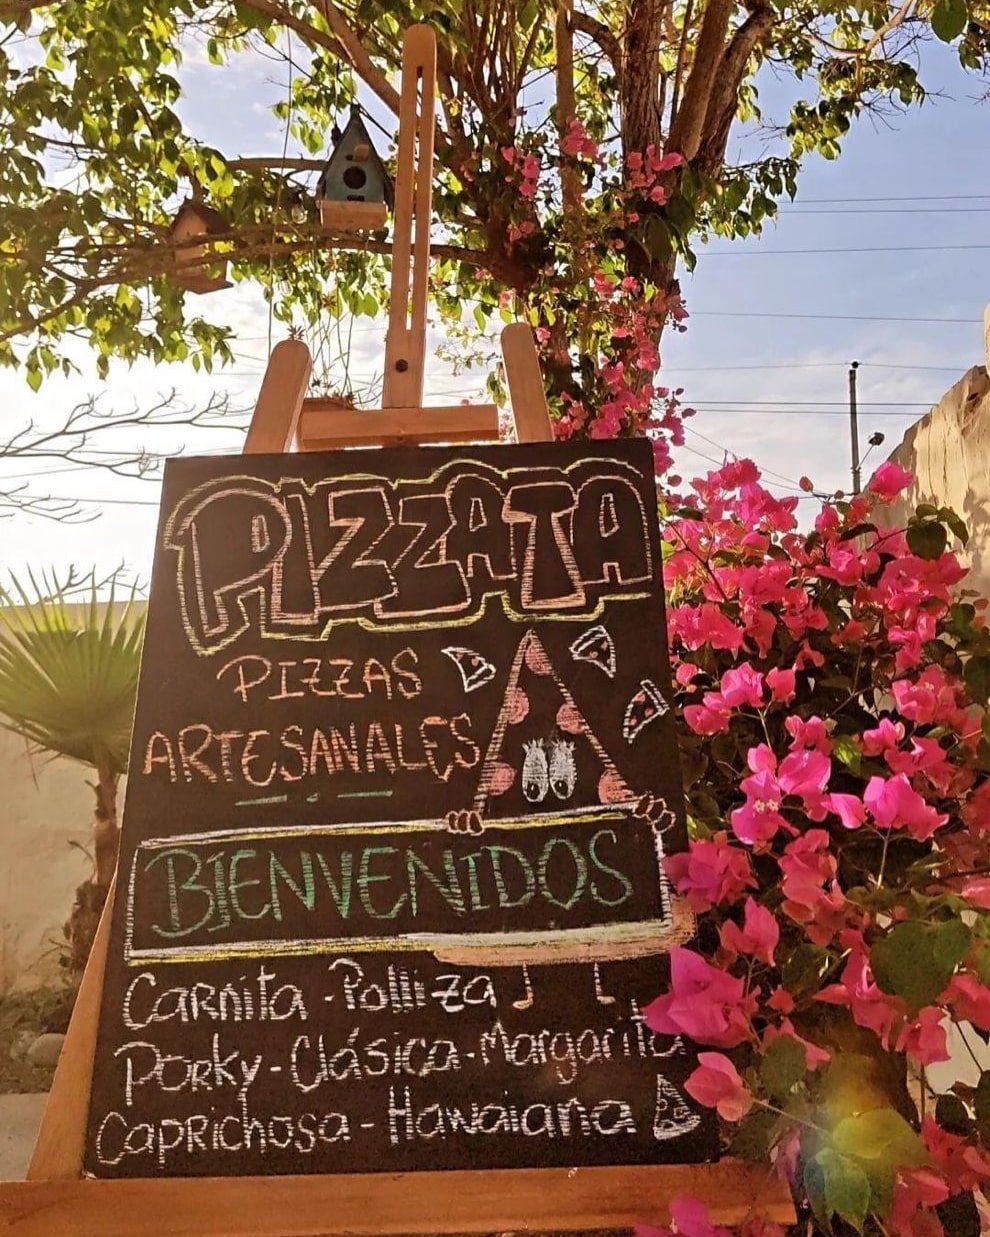 PIZZATA
PIZZAS
ARTESANALES
BIENVENIDOS
Carnita - Polliza
Porky - Clásica - Margarita
Caprichosa - Hawaiana